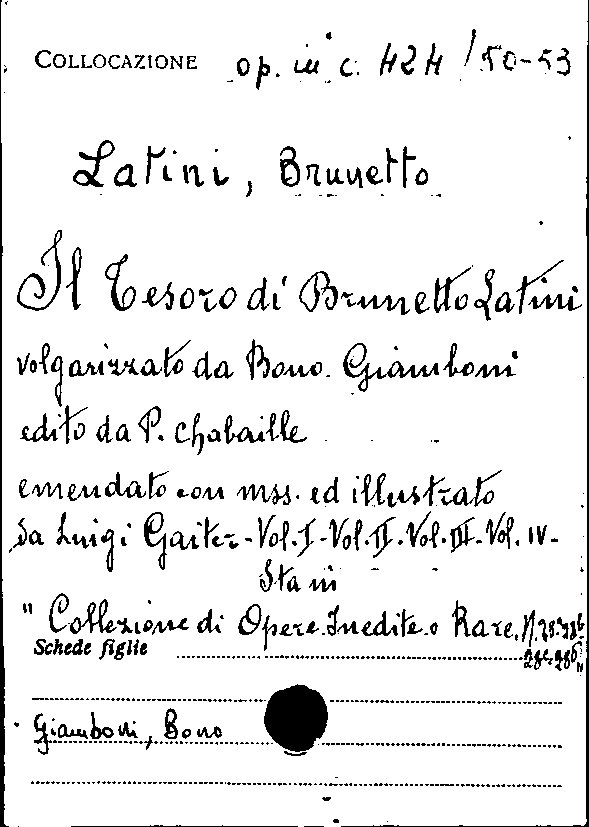 COLLOCAZIONE op. in c. 424 / 50-53
Latini, Brunetto
Il Tesoro di Brunetto Latini
volgarizzato da Bono Giamboni
edito da P. Chabaille
emendato con mss. ed illustrato
da Luigi Gaiter - Vol. I - Vol. II - Vol. III - Vol. IV -
Sta in
" Collezione di Opere Inedite o Rare. N.
Schede figlie
Giamboni, Bono